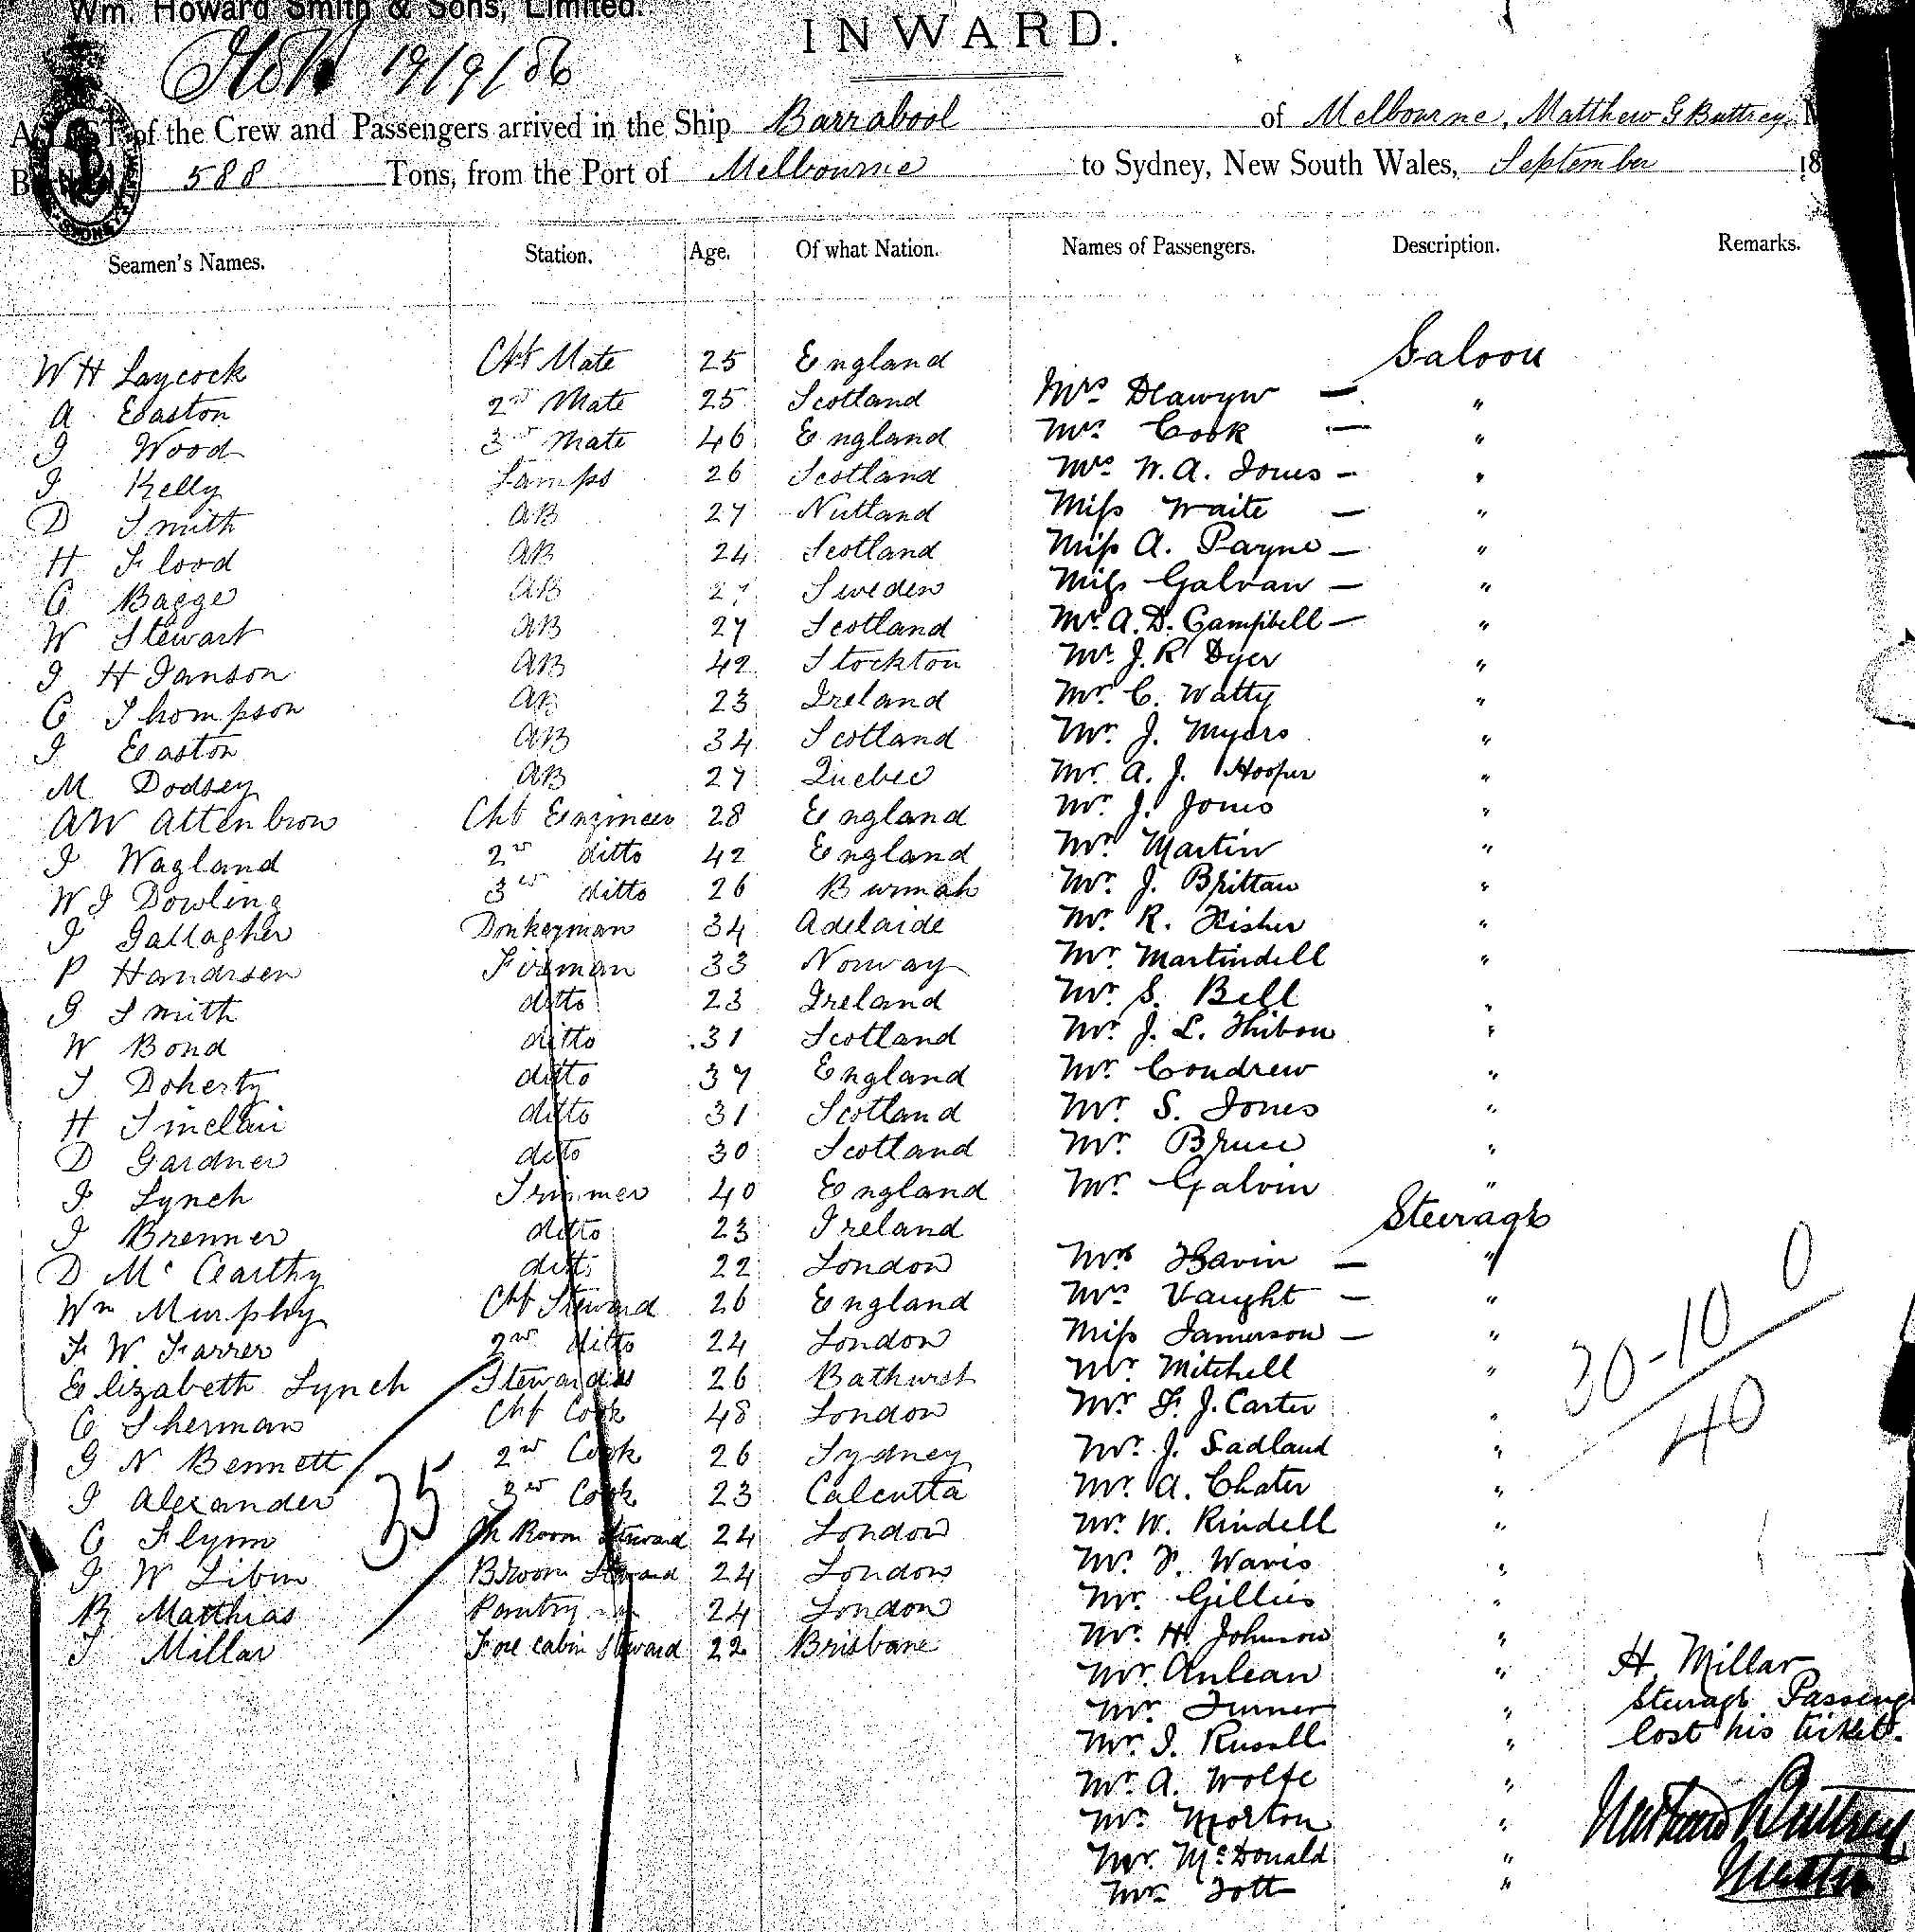 Wm. Howard Smith & Sons, Limited.
INWARD.
19/9/86
A LIST of the Crew and Passengers arrived in the Ship Barrabool of Melbourne, Matthew G Buttrey,
588 Tons, from the Port of Melbourne to Sydney, New South Wales, September 18
Seamen's Names. Station. Age. Of what Nation. Names of Passengers. Description. Remarks.
Saloon
W H Laycock Chf Mate 25 England
A Easton 2nd Mate 25 Scotland Mrs "
J Wood 3rd Mate 46 England Mrs Cook — "
J Kelly Lamps 26 Scotland Mrs W. A. Jones — "
D Smith AB 27 Miss Waite — "
H Flood AB 24 Scotland Miss A. Payne — "
C Bagge AB 27 Sweden Miss Galvan — "
W Stewart AB 27 Scotland Mr A. D. Campbell — "
J H Janson AB 42 Stockton Mr J. R Dyer "
C Thompson AB 23 Ireland Mr C. Watty "
J Easton AB 34 Scotland Mr J. Myers "
M Dodsey AB 27 Quebec Mr A. J. Hooper "
AW Attenbrow Chf Engineer 28 England Mr J. Jones "
J Wagland 2nd ditto 42 England Mr Martin "
W J Dowling 3rd ditto 26 Burmah Mr J. Brittan "
J Gallagher Donkeyman 34 Adelaide Mr R. Fisher "
P Handrsen Fireman 33 Norway Mr Martindell "
G Smith ditto 23 Ireland Mr S. Bell "
W Bond ditto 31 Scotland Mr J. L. Thibou "
J Doherty ditto 37 England Mr Condrew "
H Sinclair ditto 31 Scotland Mr S. Jones "
D Gardner ditto 30 Scotland Mr Bruce "
J Lynch Trimmer 40 England Mr Galvin "
Steerage
J Brenner ditto 23 Ireland
D McCarthy ditto 22 London Mrs — "
Wm Murphy Chf Steward 26 England Mrs Vaught — "
F W Farrer 2nd ditto 24 London Miss Jamerson — "
Elizabeth Lynch Stewardess 26 Bathurst Mr Mitchell "
C Sherman Chf Cook 48 London Mr F. J. Carter "
G N Bennett 2nd Cook 26 Sydney Mr J. Sadland "
J Alexander 3rd Cook 23 Calcutta Mr A. Chater "
C Flynn Room Steward 24 London Mr W. Rindell "
J W Broom Steward 24 London Mr F. Waris "
R Matthias Pantry 24 London Mr Gillies "
J Millar Fore cabin Steward 22 Brisbane Mr H. Johnson "
35
30-10 0
40
Mr Anlean "
Mr Turner "
Mr J. Russell "
Mr A. Wolfe "
Mr Morton "
Mr McDonald "
Mr Tott "
H. Millar
Steerage Passeng
lost his ticket.
Matthew Buttrey
Master